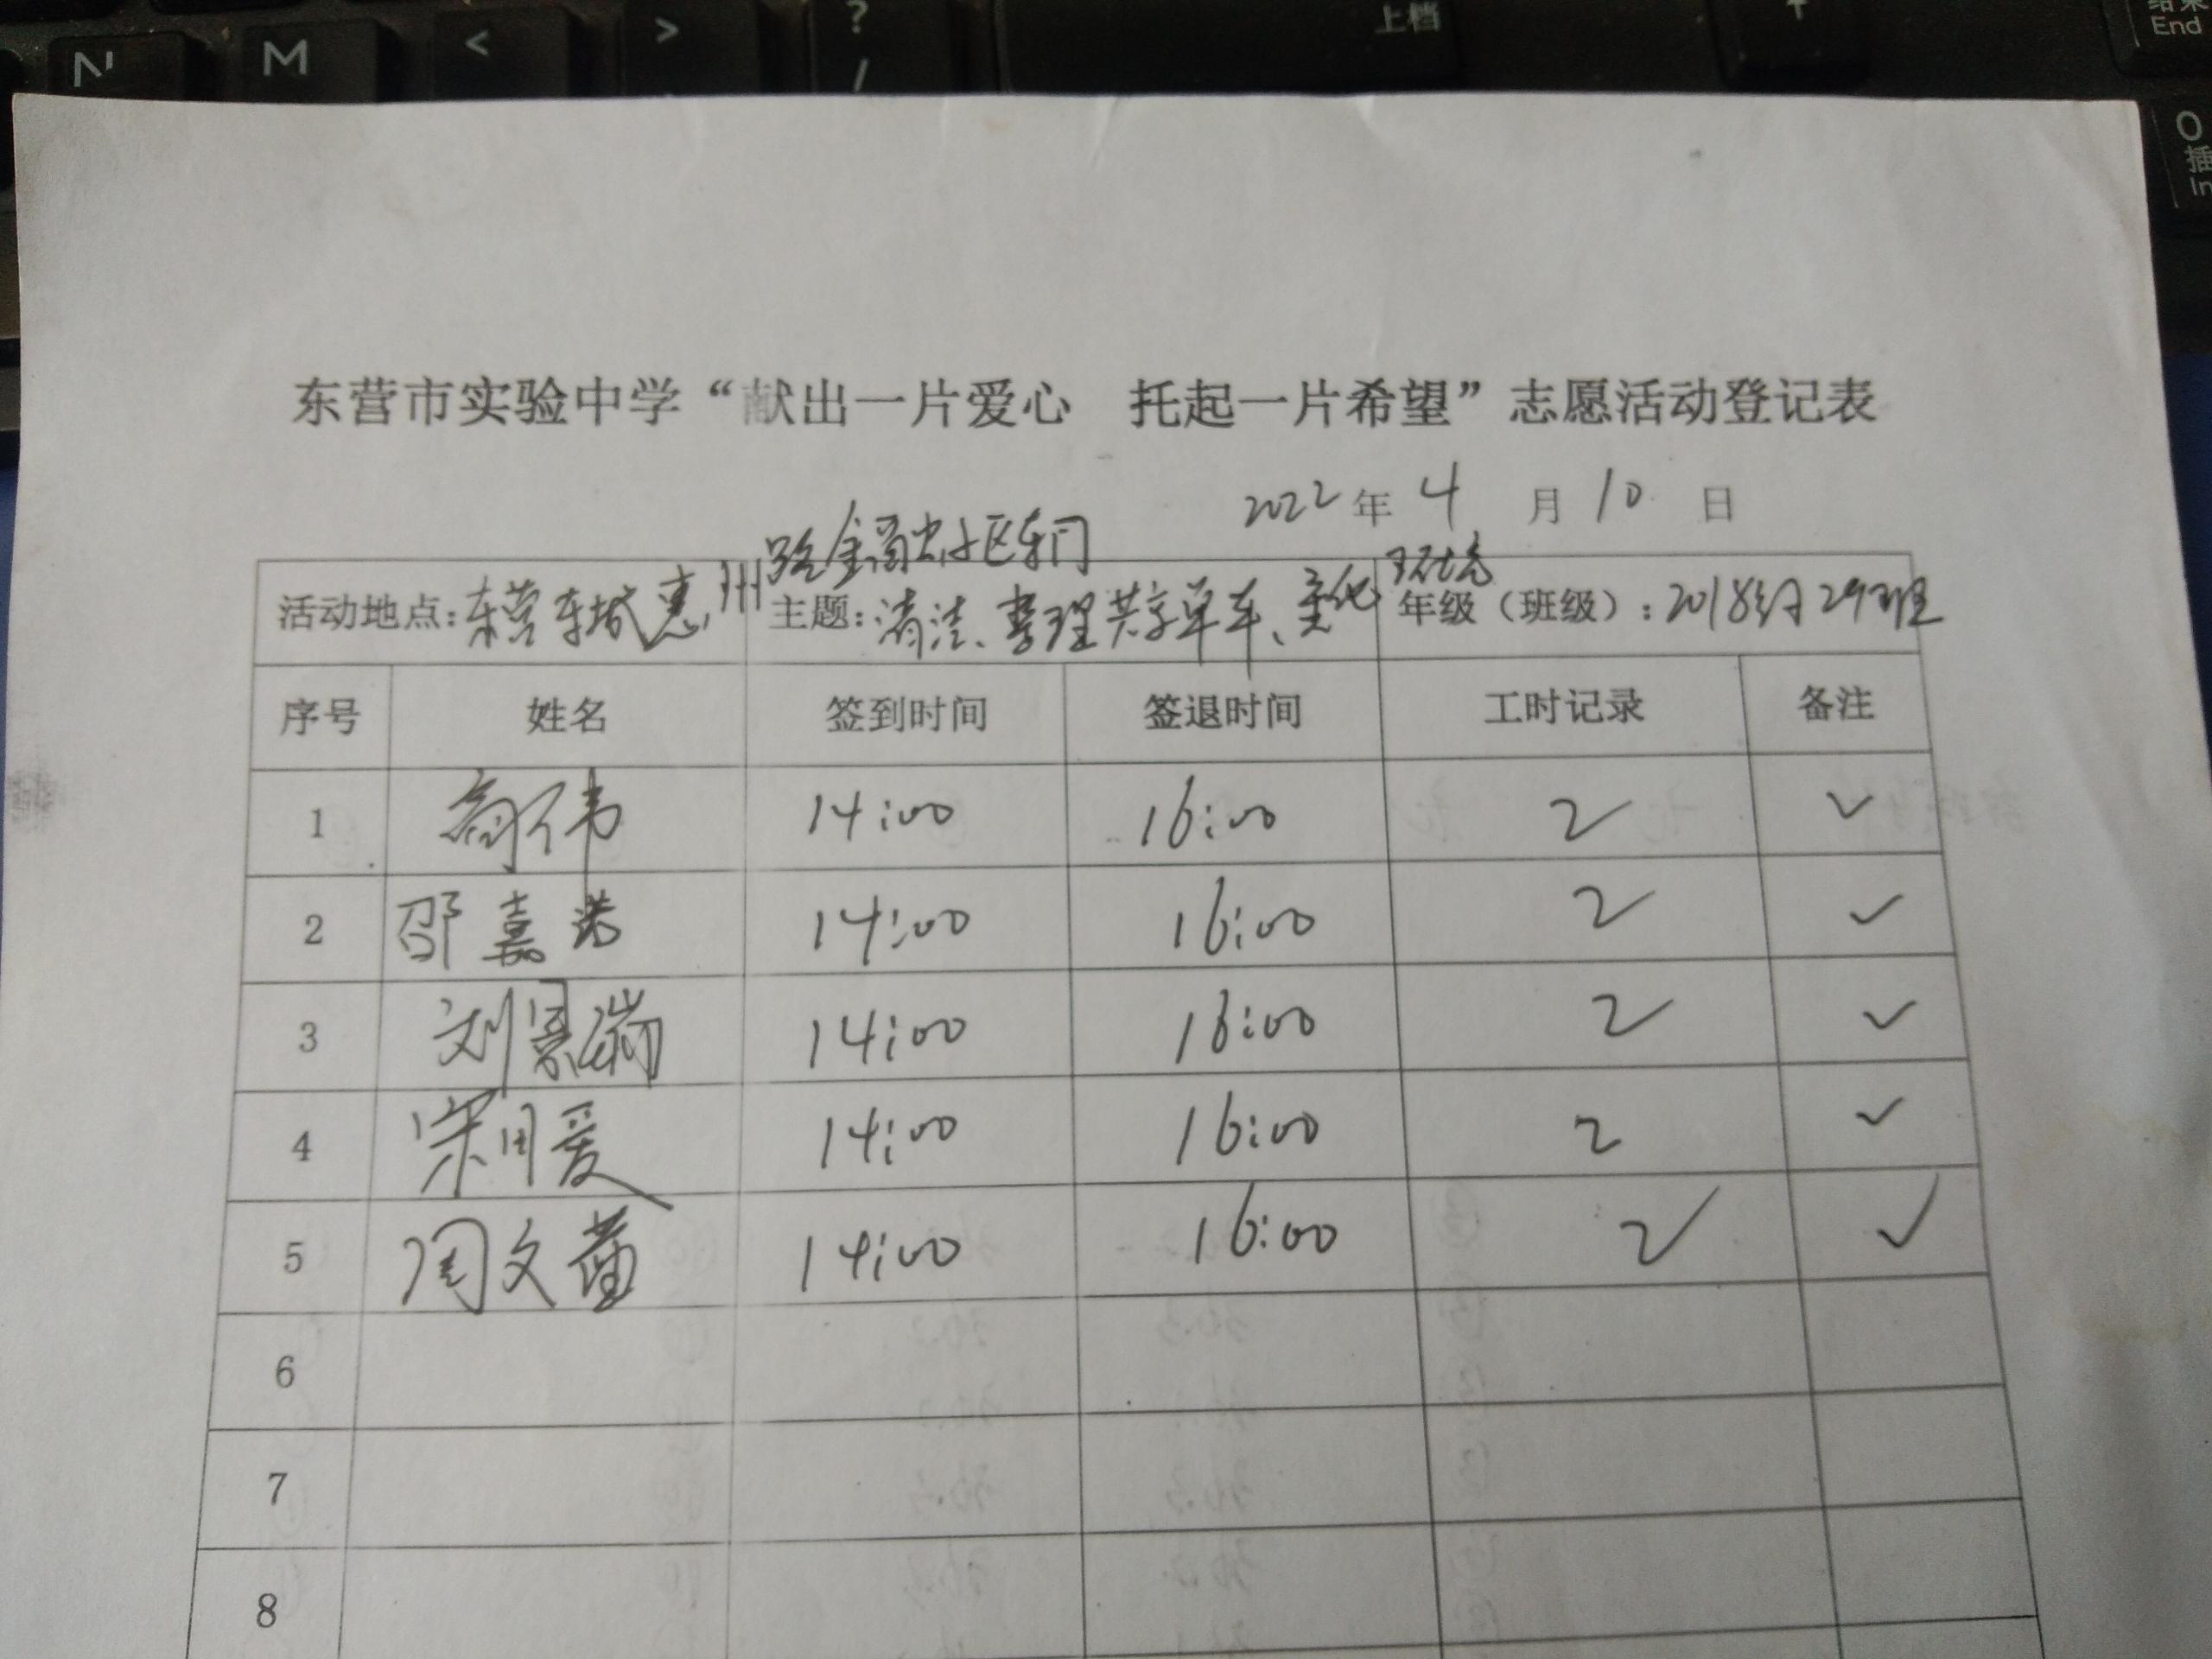 N M < > ? / 上档 ↑ 结束 End
O 插 In
东营市实验中学“献出一片爱心 托起一片希望”志愿活动登记表
2022年 4 月 10 日
活动地点：东营东城惠州路金湾小区东门 主题：清洁、整理共享单车、美化环境 年级（班级）：2018级29班
序号 姓名 签到时间 签退时间 工时记录 备注
1 伟 14:00 16:00 2 ✓
2 邵嘉诺 14:00 16:00 2 ✓
3 刘景瑞 14:00 16:00 2 ✓
4 宋明爱 14:00 16:00 2 ✓
5 周文 14:00 16:00 2 ✓
6
7
8